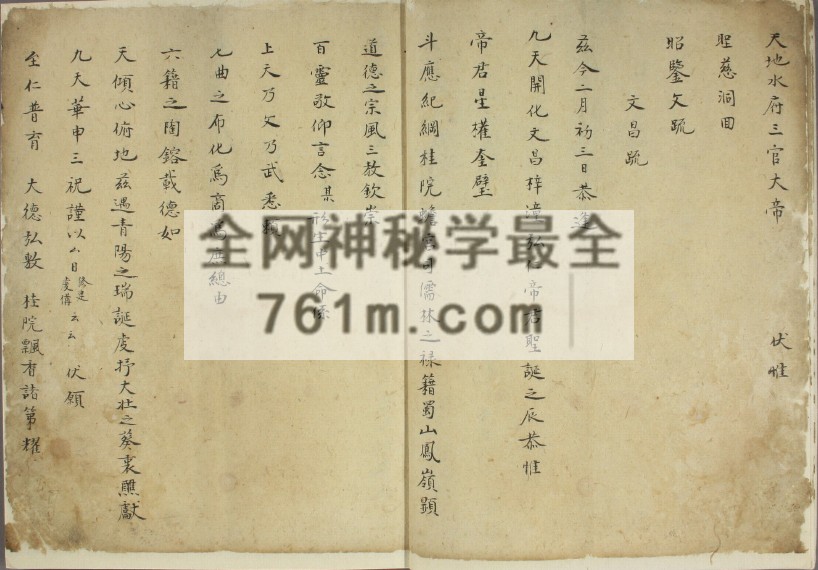 天地水府三官大帝 伏惟
聖慈洞回
昭鑒文疏
文昌疏
茲今二月初三日恭逢
九天開化文昌梓潼弘仁帝君聖誕之辰恭惟
帝君星權奎璧
斗應紀綱桂院蟾宮司儒林之祿籍蜀山鳳嶺顯
道德之宗風三教欽崇
百靈敬仰言念某 命係
上天乃文乃武悉
七曲之布化為商為 總由
六籍之陶鎔載德如
天傾心俯地茲遇青陽之瑞誕虔抒大壯之葵衷熏獻
九天華申三祝謹以厶日修建虔備云云 伏願
全仁普育 大德弘敷 桂院飄香諸第耀
全网神秘学最全
761m.com